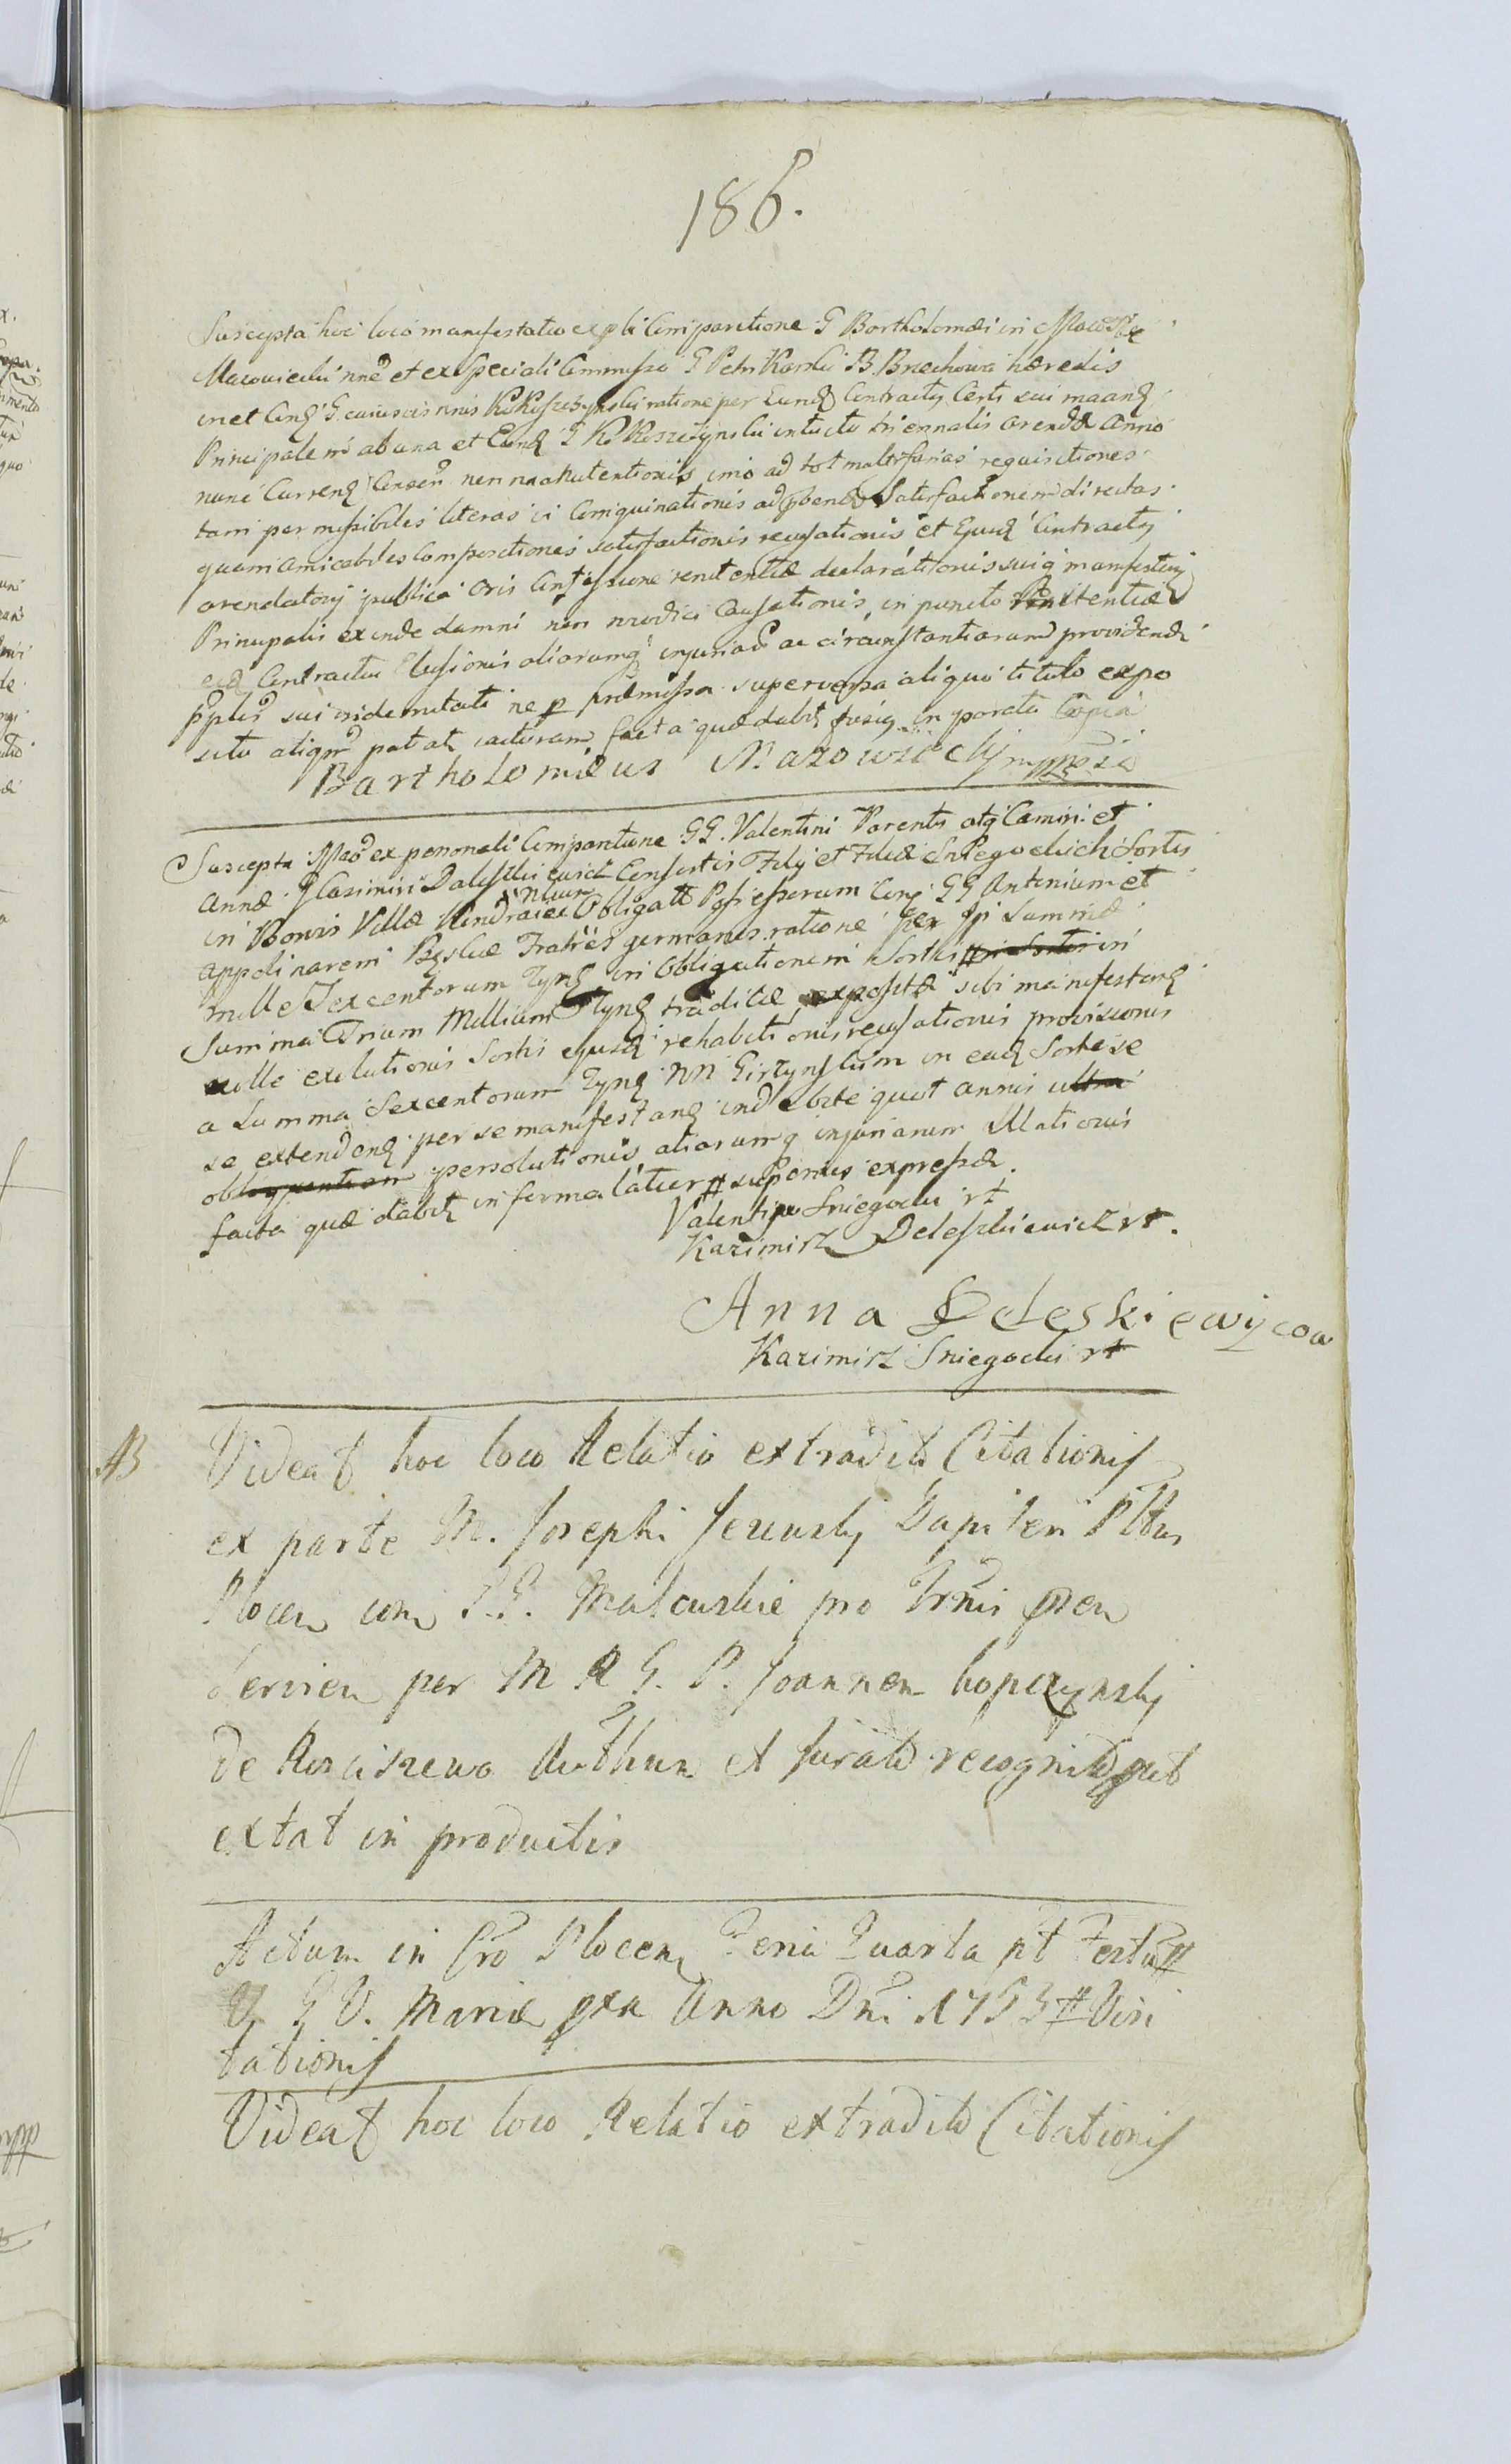 186.
Suscepta hoc loco manifestatio ex pli Comparitione G Bartholomæi in Mazowsze
Mazowiecki nne et ex speciali Commisso G Petri Karski B. Brzechowa hæredis
in et Conq G. cuiuscis nnis Kokoszczynski ratione per Eunq Contractq Certi sui maanq
Principalem ab una et Eunq G Kokoszczynski intuitu triennalis arendæ Anno
nunc Currenq Censen non manutentionis, imo ad tot multifarias requisitiones
tam per missibiles literas ci Comquinationis ad pbendæ Satisfactionem directas
quam amicabiles Compositiones satisfactionis recusationis et Ejusq Contractq
arendatorij publica oris Confessione renitentiæ declarationis suiq manifestanq
Principalis exinde damni non modici Causationis, in puncto Renitentiæ
ejq Contractus Elusionis aliarumq injuriaru ac circumstantiarum providendi
pples sui indemnitati ne p præmissa superversa aliquo titulo expo
situ aliqm patat, iacturam facta quæ dabit fusiq in parata Copia
Bartholomæus Mazowiecki mppria
Suscepta Mao ex personali Comparitione GG. Valentini Parentis atq Casimiri et
Annæ G Casimiri Daleszkiewicz Consortis Filij et Filiæ Sniegockich Sortis
in Bonis Villæ Kendraiec Nluu Obligatt Possessorum Conq GG Antonium et
Appolinarem Bęskie Fratres germanos ratione per Ipi Summæ
mille Sexcentorum Fynq in Obligationem Sortis in
Summa Trium Millium Flynq traditæ, expositæ sibi manifestanq
nolle exolutionis Sortis ejusq rehabitionis recusationis provisionis
a Summa Sexcentorum Fynq NN Girzynskim in eaq Sorte se
se extendenq per se manifestanq indebite quot annis ultra
persolutionis aliarumq injuriarum Illationis
facta quæ dabit in forma latiori # superius expressæ.
Valentin Sniegocki rt
Kazimirz Deleszkiewicz rt.
Anna Deleskiewijcow
Kazimirz Sniegocki rt
AB
Videat hoc loco Relatio extradit Citationis
ex parte M. Josephi Jezewskij Dapiferi Pltus
Plocen con G.G. Malewskie pro Trmis pren
servien per M R G. P. Joannem Kopczynskij
de Rosciszewo Authen et Jurat recognit put
extat in productis
Actum in Cro Plocen Feria Quarta pt Festu #
V. G V. Mariæ pxa Anno Dni 1753 # Visi
tationis
Videat hoc loco Relatio extradit Citationis